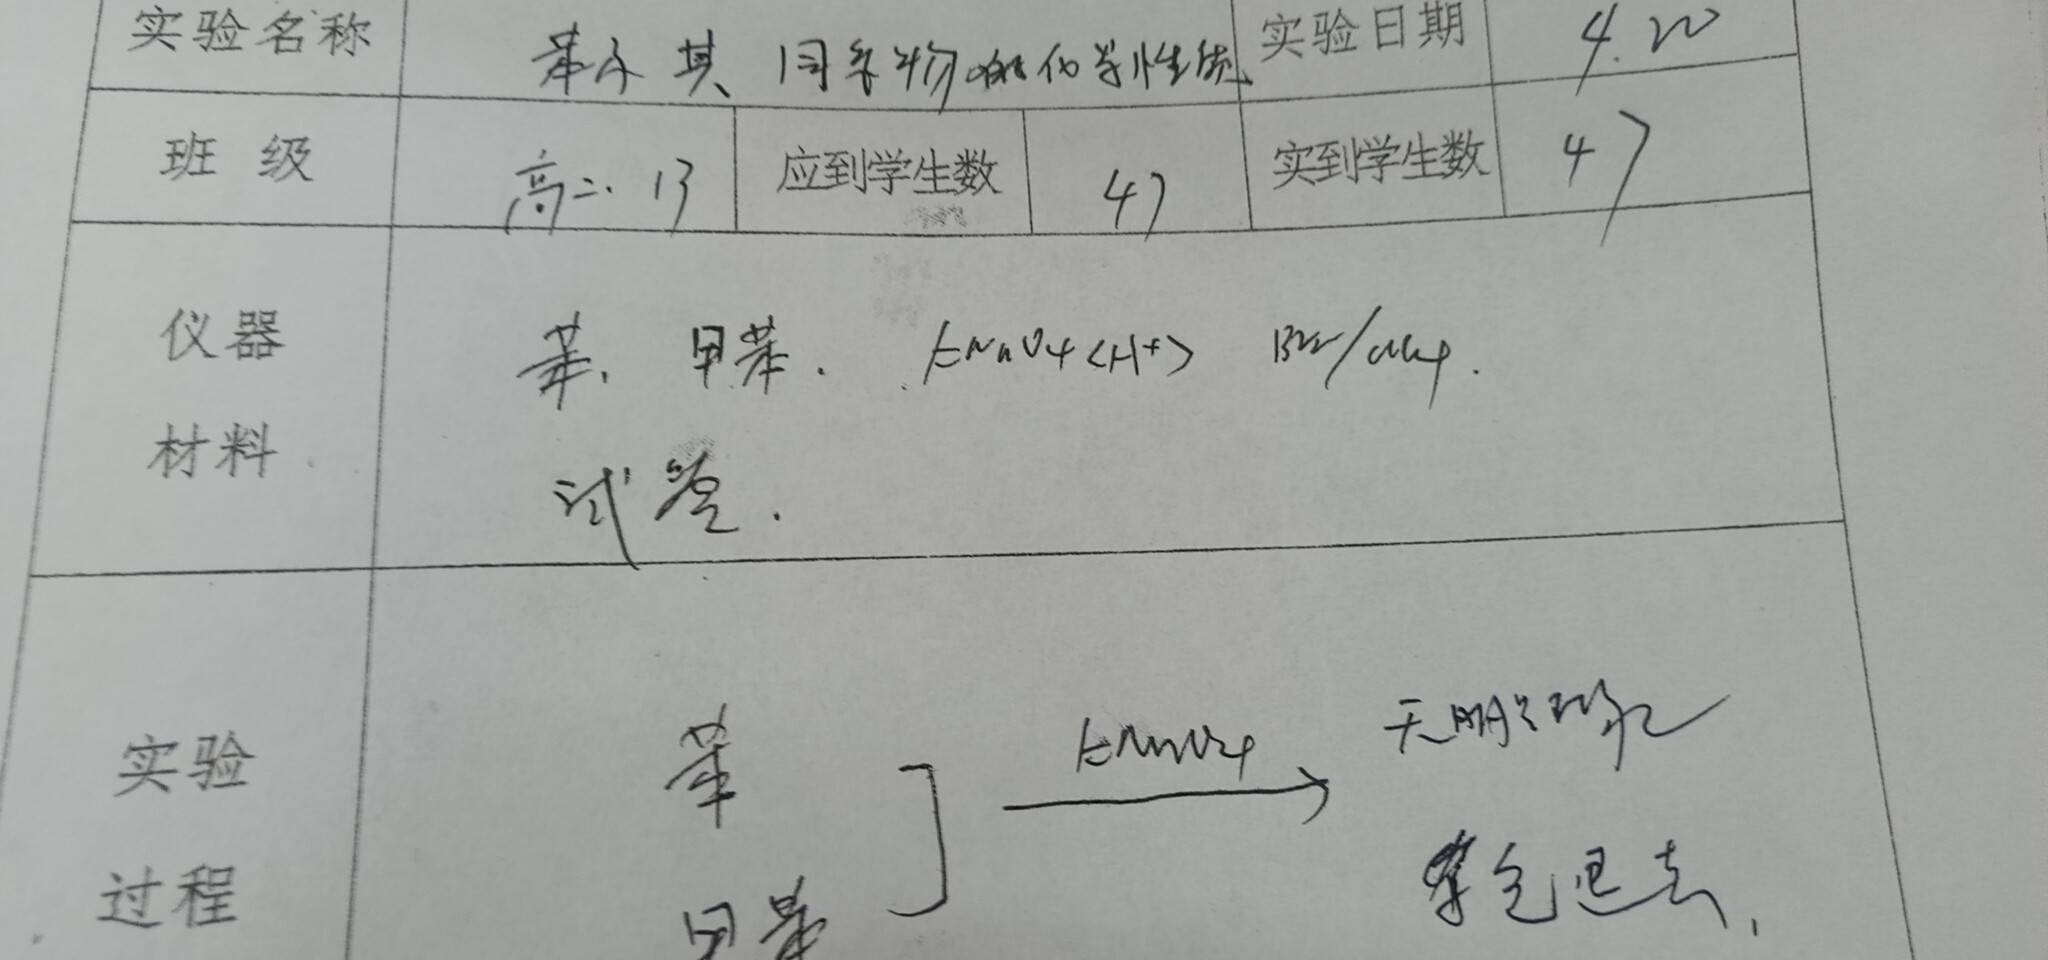 实验名称 苯及其同系物的化学性质 实验日期 4.20
班级 高二.13 应到学生数 47 实到学生数 47
仪器材料 苯. 甲苯. KMnO4<H+> Br2/CCl4.
试管.
实验过程 苯 KMnO4 无明显现象
甲苯 紫色退去.